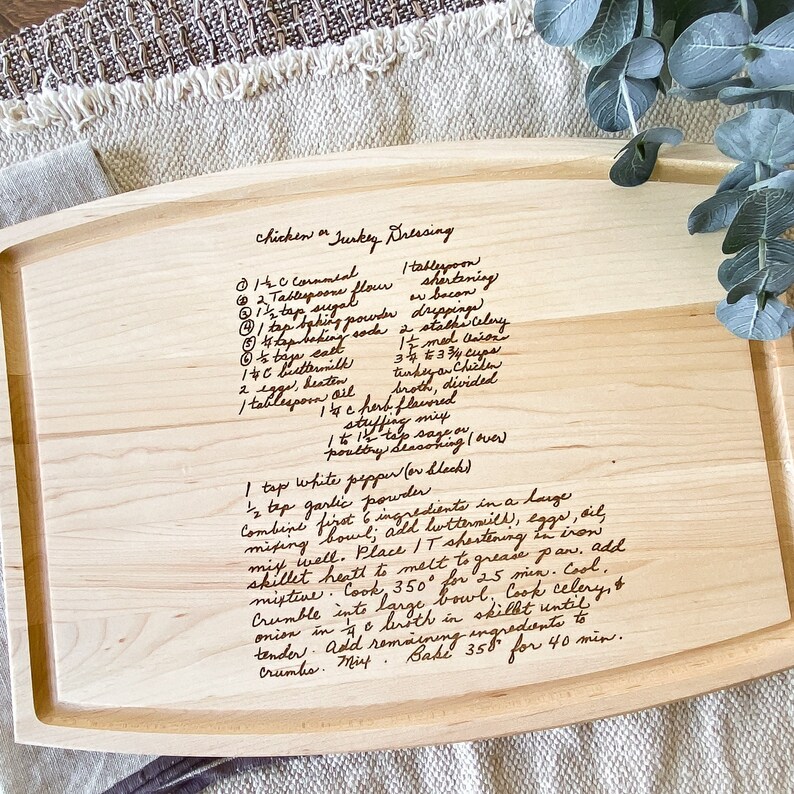 Chicken or Turkey Dressing
① 1 ½ C Cornmeal
② 2 Tablespoons flour
③ 1 ½ tsp sugar
④ 1 tsp baking powder
⑤ ¼ tsp baking soda
⑥ ½ tsps salt
1 ¼ C buttermilk
2 eggs, beaten
1 tablespoon oil
1 tablespoon
shortening
or bacon
drippings
2 stalks Celery
1 ½ med onions
3 ¼ to 3 ¾ cups
turkey or Chicken
broth, divided
1 ¼ c herb flavored
stuffing mix
1 to 1 ½ tsp sage or
poultry seasoning (over)
1 tsp white pepper (or black)
½ tsp garlic powder
Combine first 6 ingredients in a large
mixing bowl; add buttermilk, eggs, oil,
mix well. Place 1 T shortening in iron
skillet heatl to melt to grease pan. add
mixture. Cook 350° for 25 min. Cool.
Crumble into large bowl. Cook celery, &
onion in ¼ c broth in skillet until
tender. Add remaining ingredients to
crumbs. Mix. Bake 350° for 40 min.